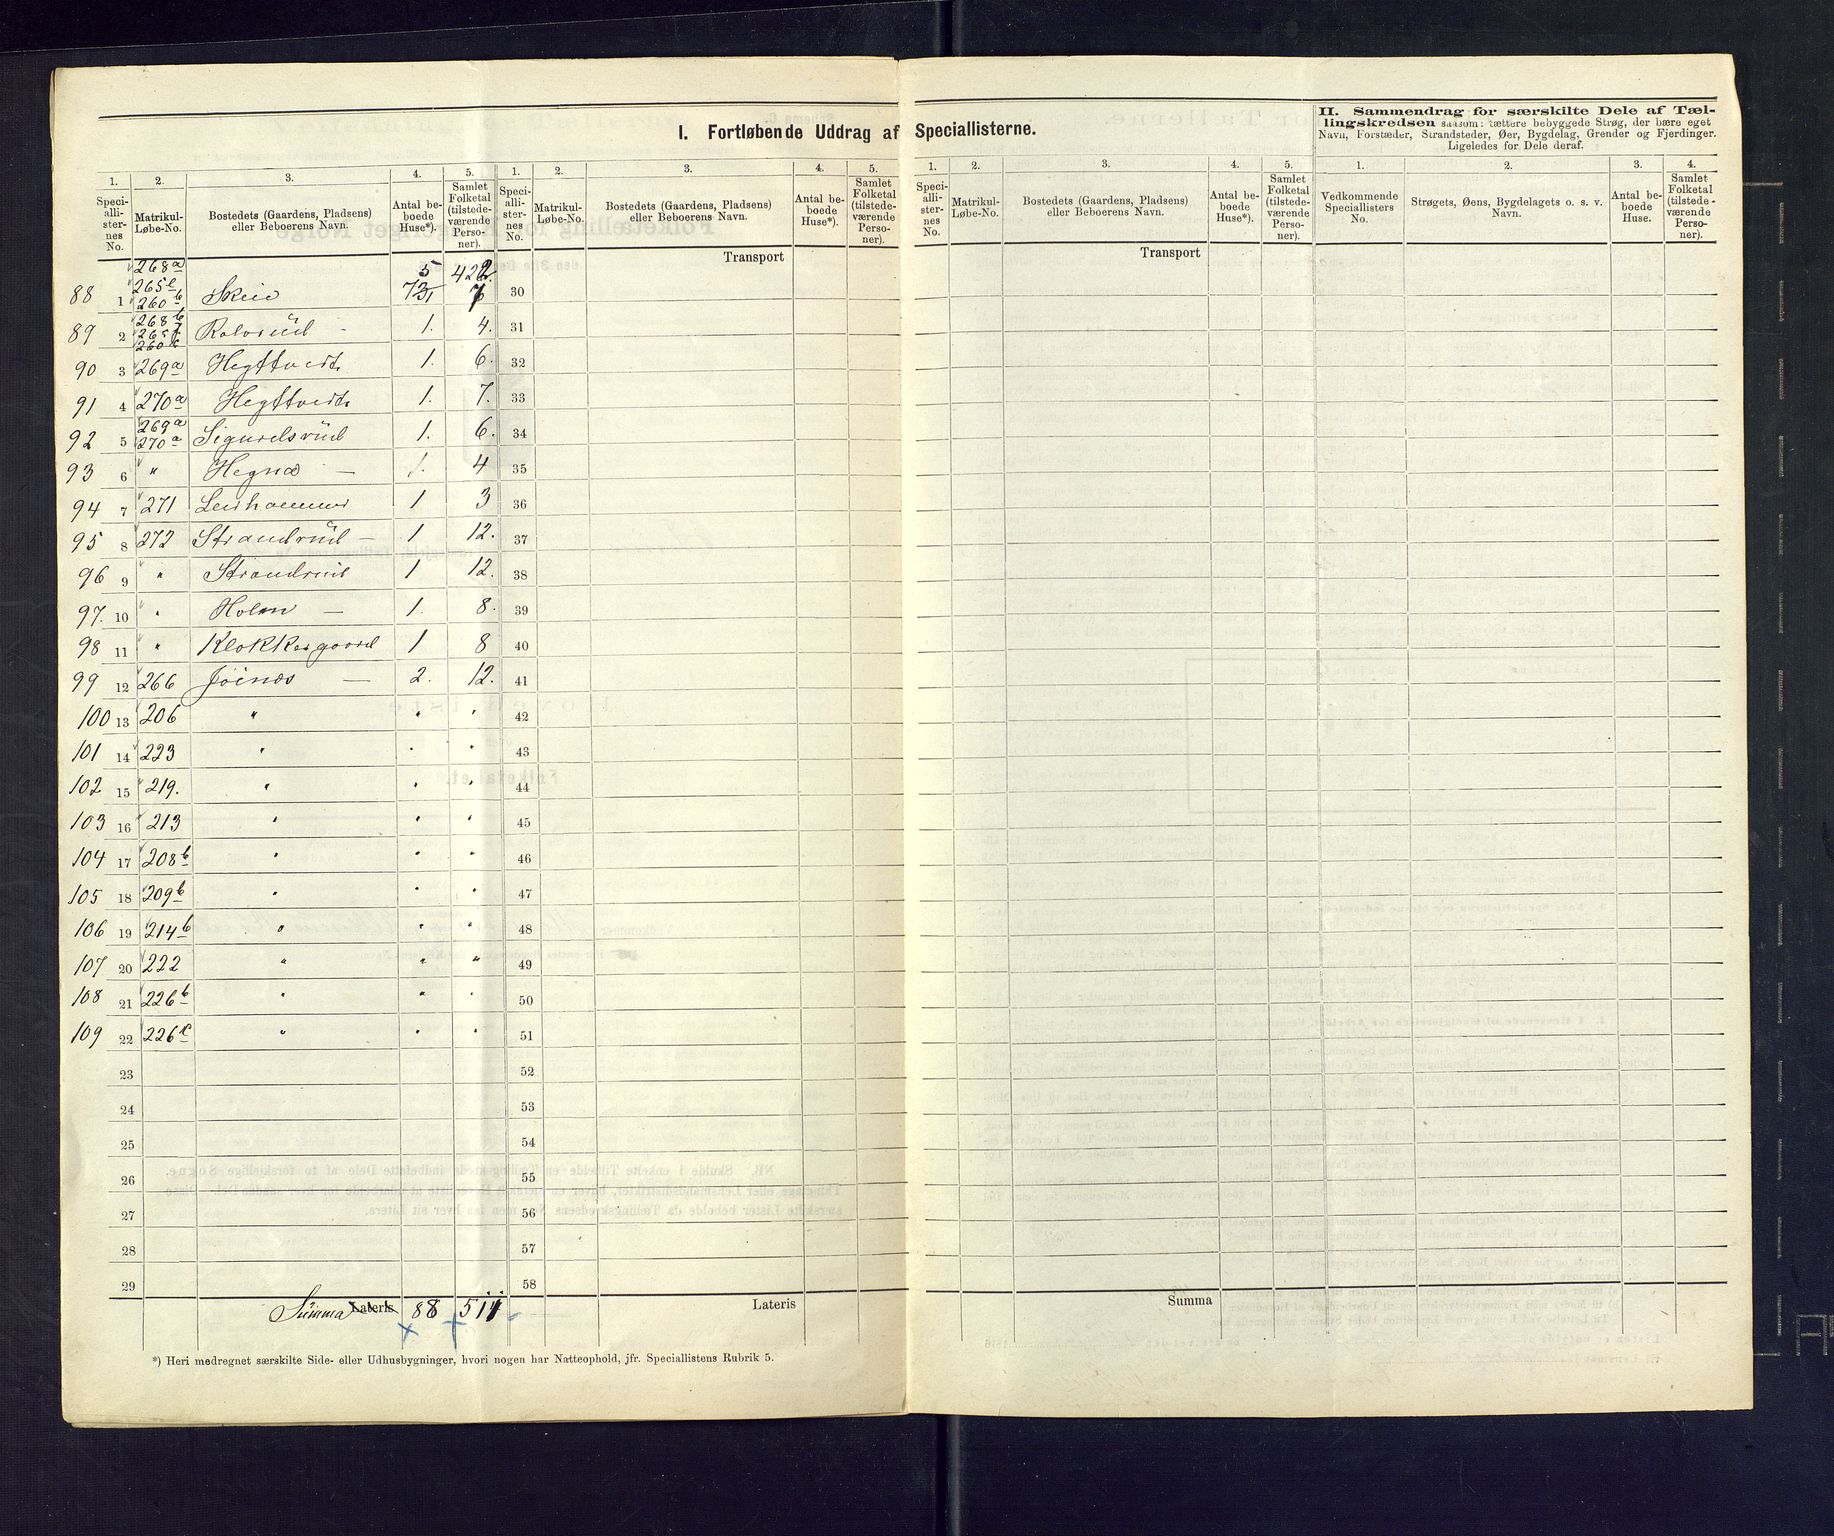 I. Fortløbende Uddrag af Speciallisterne.
II. Sammendrag for særskilte Dele af Tællingskredsen saasom: tættere bebyggede Strøg, der bære eget Navn, Forstæder, Strandsteder, Øer, Bygdelag, Grender og Fjerdinger. Ligeledes for Dele deraf.
1. 2. 3. 4. 5. 1. 2. 3. 4. 5. 1. 2. 3. 4. 5. 1. 2. 3. 4.
Speciallisternes No. Matrikul-Løbe-No. Bostedets (Gaardens, Pladsen) eller Beboerens Navn. Antal beboede Huse*). Samlet Folketal (tilstedeværende Personer).
Speciallisternes No. Matrikul-Løbe-No. Bostedets (Gaardens, Pladsen) eller Beboerens Navn. Antal beboede Huse*). Samlet Folketal (tilstedeværende Personer).
Speciallisternes No. Matrikul-Løbe-No. Bostedets (Gaardens, Pladsen) eller Beboerens Navn. Antal beboede Huse*). Samlet Folketal (tilstedeværende Personer).
Vedkommende Speciallisters No. Strøgets, Øens, Bygdelagets o. s. v. Navn. Antal beboede Huse. Samlet Folketal (tilstedeværende Personer).
Transport Transport
268a
265e
88 1 260b Skeie 7 30
268b
89 2 265f 1. 4. 31
260c
90 3 269a Hegttvedt 1. 6. 32
91 4 270a Hegttvedt 1. 7. 33
269a
92 5 270a Sigurdsrud 1. 6. 34
93 6 " Hegna — 1. 4 35
94 7 271 Leirhammer 1 3 36
95 8 272 Strandrud — 1 12. 37
96 9 " Strandrud 1 12. 38
97. 10 " Holm — 1. 8. 39
98 11 " Klokkergaard 1 8 40
99 12 266 Jöinæs — 2. 12. 41
100 13 206 " " " 42
101 14 223 " " " 43
102 15 219. " " " 44
103 16 213 " " " 45
104 17 208b " " " 46
105 18 209b " " " 47
106 19 214b " " " 48
107 20 222 " " " 49
108 21 226b " " " 50
109 22 226c " " " 51
23 52
24 53
25 54
26 55
27 56
28 57
29 58
Summa Lateris 88 511 Lateris Summa
*) Heri medregnet særskilte Side- eller Udhusbygninger, hvori nogen har Natteophold, jfr. Speciallistens Rubrik 5.